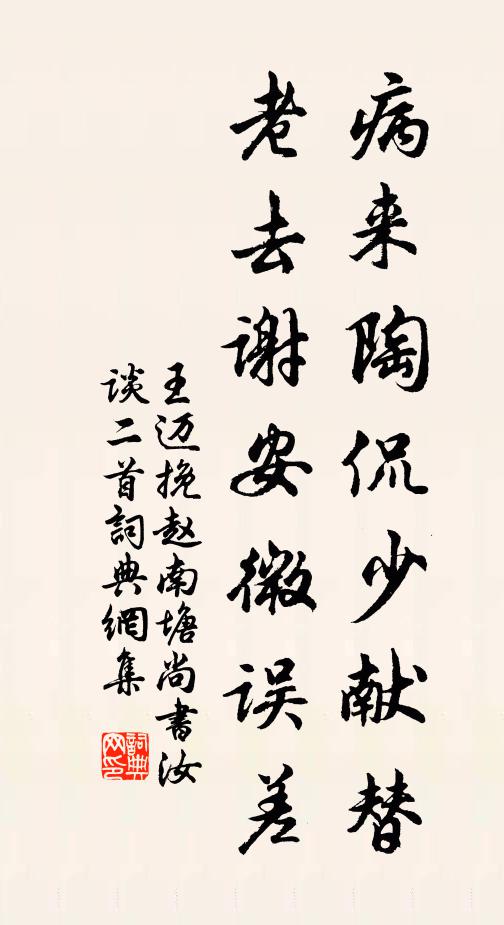 病来陶侃少献替
老去谢安微误差
王迈挽赵南塘尚书汝
谈二首詞典網集
詞典
网印